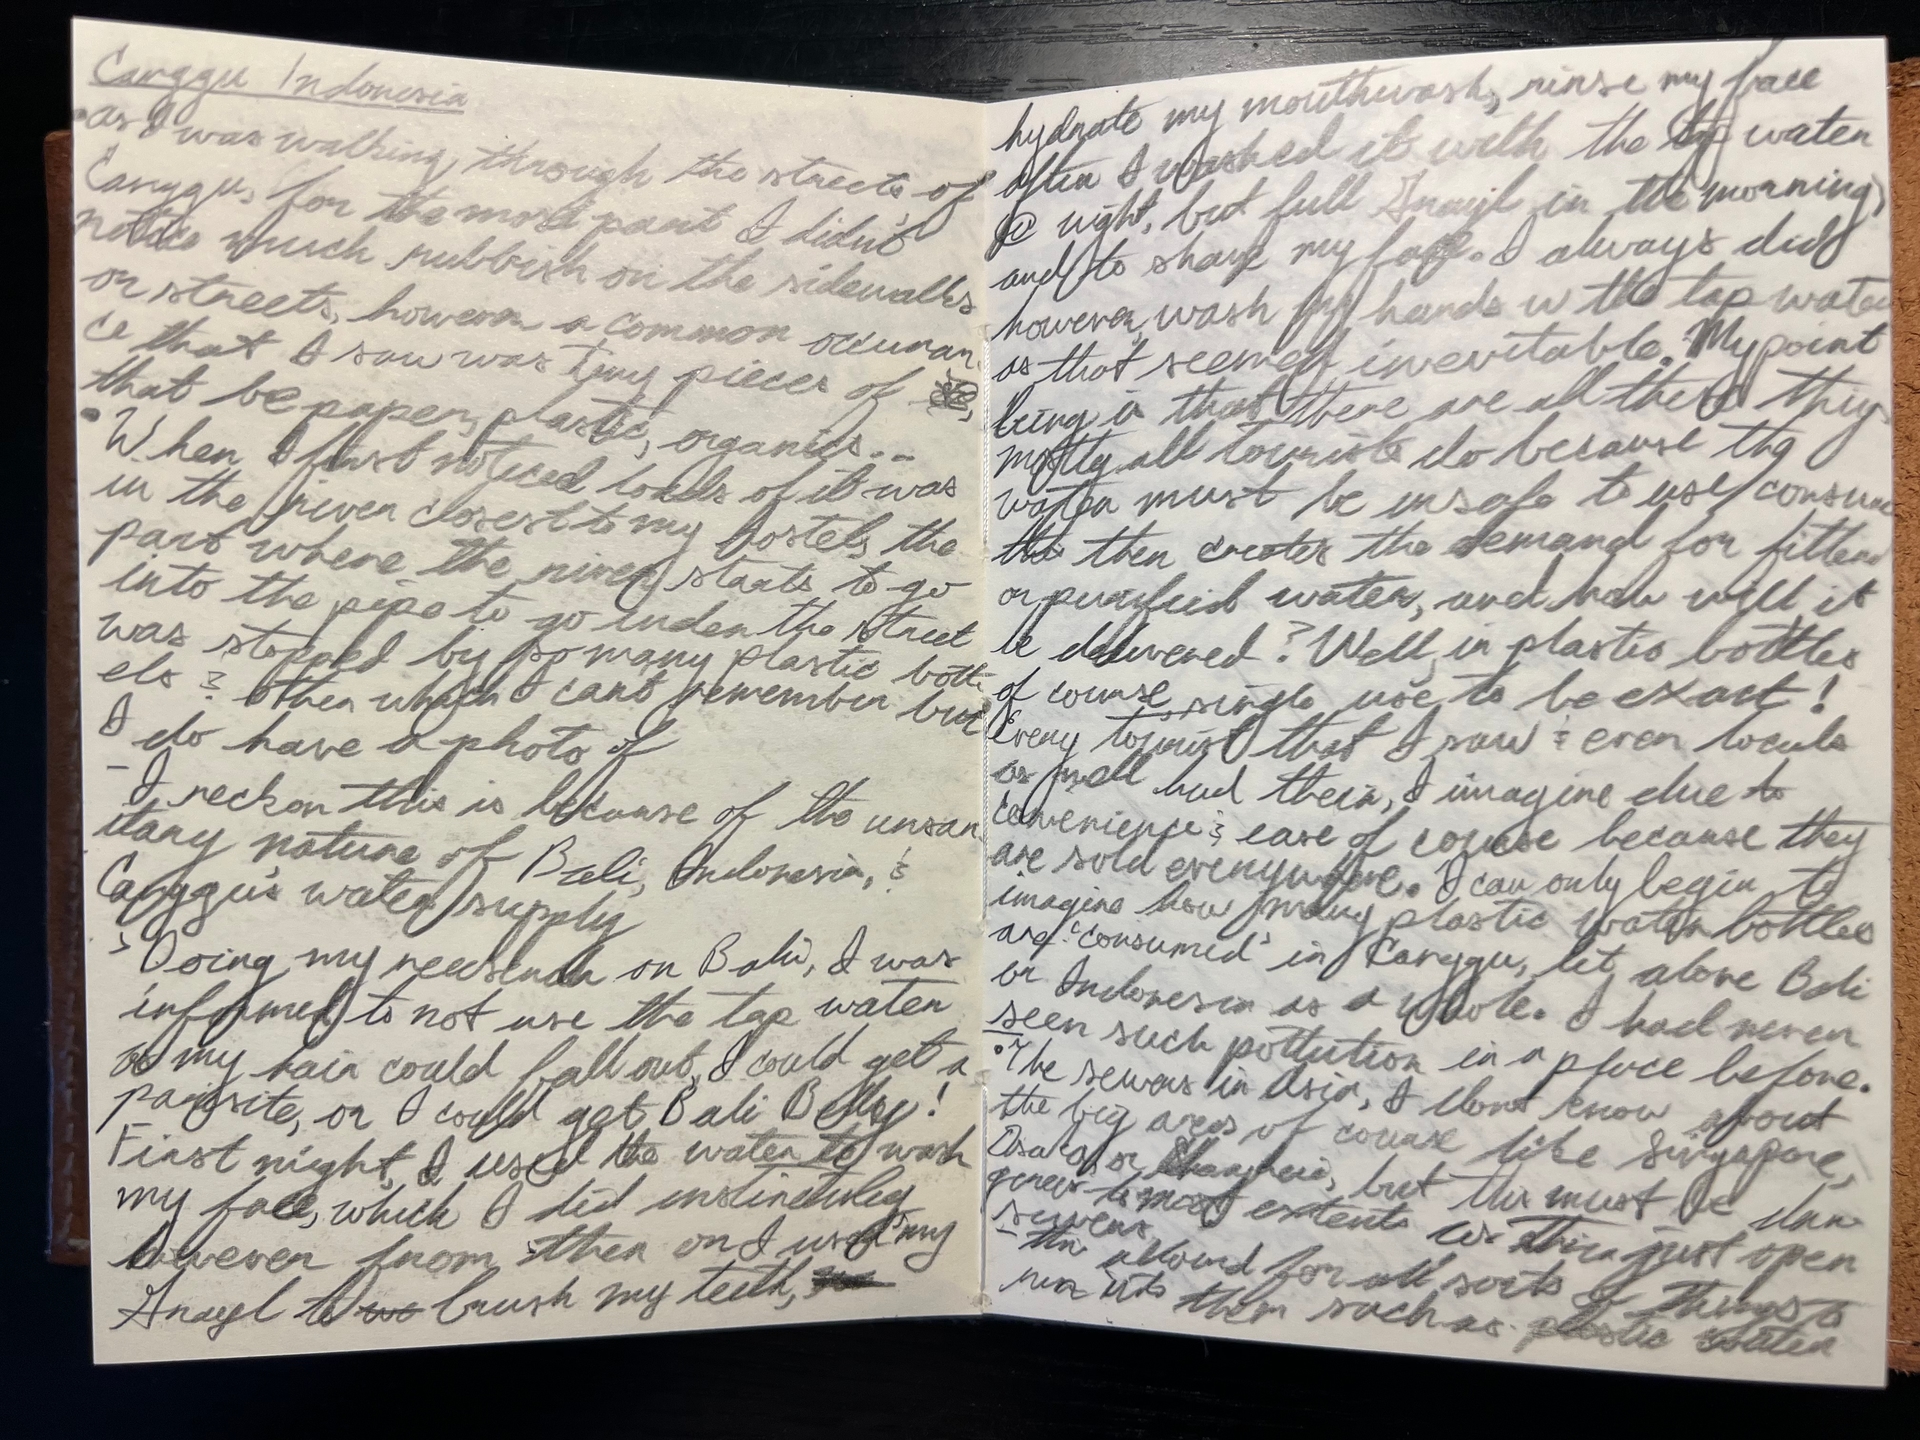 Canggu Indonesia
• as I was walking through the streets of
Canggu, for the most part I didn't
notice much rubbish on the sidewalks
or streets, however a common occuran
ce that I saw was tiny pieces of
that be paper, plastic, organics...
• When I first noticed loads of it was
in the river closest to my hostel, the
part where the river starts to go
into the pipe to go under the street
was stopped by so many plastic bott
els & other which I cant remember but
I do have a photo of
- I reckon this is because of the unsan
itary nature of Bali, Indonesia, &
Canggu's water supply
> Doing my research on Bali, I was
informed to not use the tap water
as my hair could fall out, I could get a
parasite, or I could get Bali Belly!
First night, I used the water to wash
my face, which I did instinctively
however from then on I used my
Grayl to brush my teeth,
hydrate my mouthwash, rinse my face
after I washed it with the tap water
@ night, but full Grayl in the morning,
and to shave my face. I always did
however, wash my hands w the tap water
as that seemed inevitable. My point
being is that there are all these things
mostly all tourists do because the
water must be unsafe to use/consume
this then creates the demand for filtered
or purified water, and how will it
be delivered? Well, in plastic bottles
of course, single use to be exact!
Every tourist that I saw & even locals
as well had them, I imagine due to
convenience & ease of course because they
are sold everywhere. I can only begin to
imagine how many plastic water bottles
are 'consumed' in Canggu, let alone Bali
or Indonesia as a whole. I had never
seen such pollution in a place before.
• The sewers in Asia, I dont know about
the big areas of course like Singapore,
Osaka, or Shanghai, but this must be
to most extents as their just open
sewers
- this allowed for all sorts of things to
run into them such as plastic water